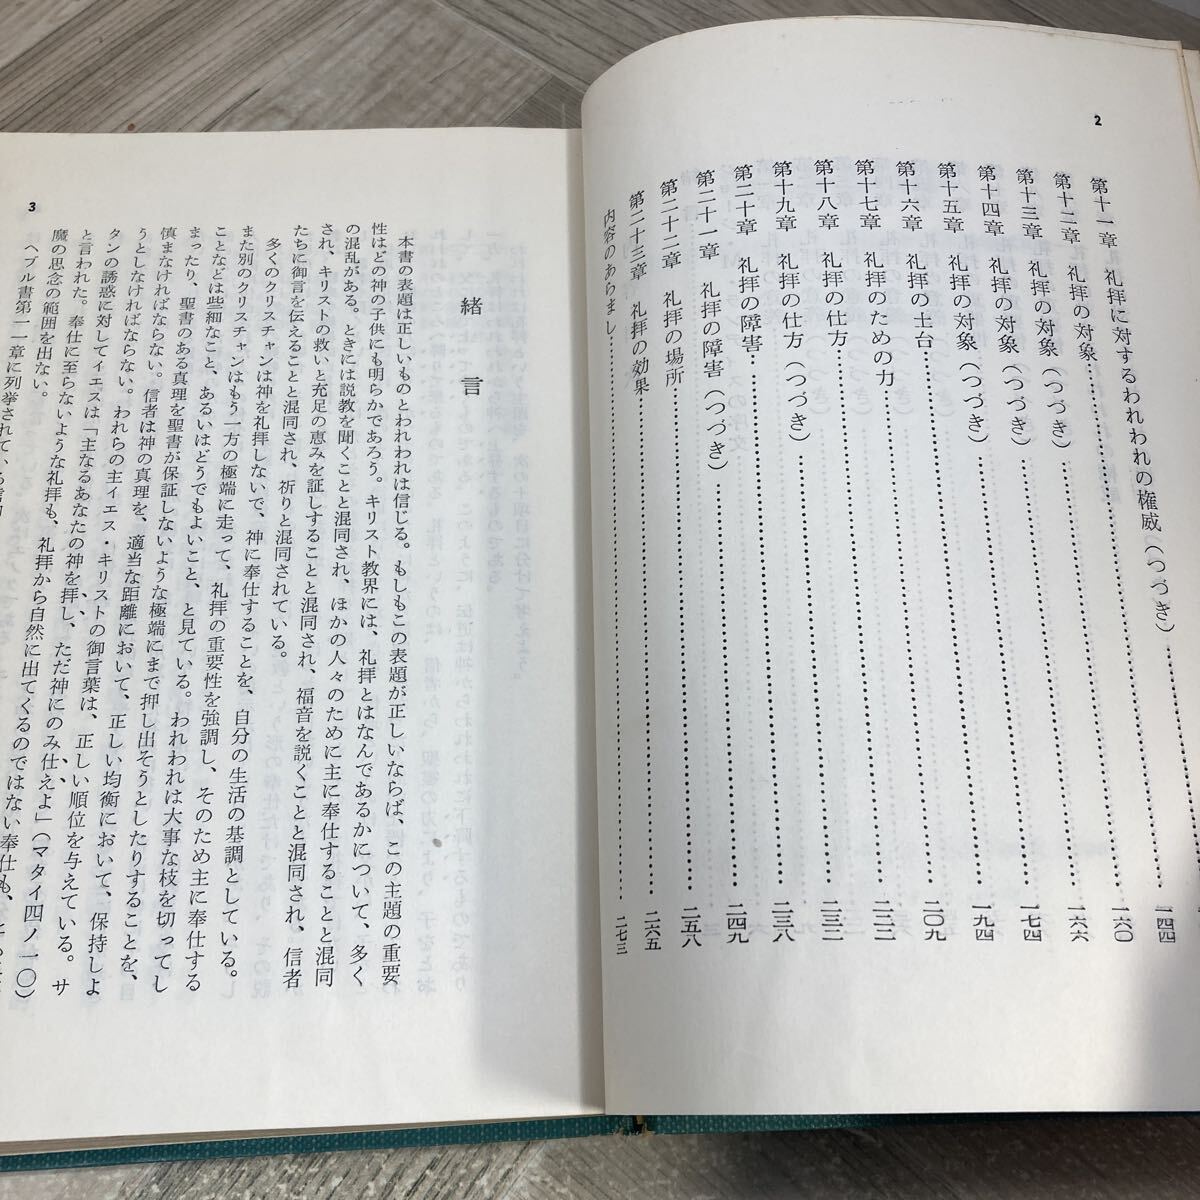 2
第十一章　礼拝に対するわれわれの権威（つづき）
第十二章　礼拝の対象……一四四
第十三章　礼拝の対象（つづき）……一六〇
第十四章　礼拝の対象（つづき）……一六六
第十五章　礼拝の対象（つづき）……一七四
第十六章　礼拝の土台……一九四
第十七章　礼拝のための力……二〇九
第十八章　礼拝の仕方……二二二
第十九章　礼拝の仕方（つづき）……二三二
第二十章　礼拝の障害……二三八
第二十一章　礼拝の障害（つづき）……二四九
第二十二章　礼拝の場所……二五八
第二十三章　礼拝の効果……二六五
内容のあらまし……二七三
3
緒言
本書の表題は正しいものとわれわれは信じる。もしもこの表題が正しいならば、この主題の重要
性はどの神の子供にも明らかであろう。キリスト教界には、礼拝とはなんであるかについて、多く
の混乱がある。ときには説教を聞くことと混同され、ほかの人々のために主に奉仕することと混同
され、キリストの救いと充足の恵みを証しすることと混同され、福音を説くことと混同され、信者
たちに御言を伝えることと混同され、祈りと混同されている。
多くのクリスチャンは神を礼拝しないで、神に奉仕することを、自分の生活の基調としている。
また別のクリスチャンはもう一方の極端に走って、礼拝の重要性を強調し、そのため主に奉仕する
ことなどは些細なこと、あるいはどうでもよいこと、と見ている。われわれは大事な枝を切ってし
まったり、聖書のある真理を聖書が保証しないような極端にまで押し出そうとしたりすることを、
慎まなければならない。信者は神の真理を、適当な距離において、正しい均衡において、保持しよ
うとしなければならない。われらの主イエス・キリストの御言葉は、正しい順位を与えている。サ
タンの誘惑に対してイエスは「主なるあなたの神を拝し、ただ神にのみ仕えよ」（マタイ四ノ一〇）
と言われた。奉仕に至らないような礼拝も、礼拝から自然に出てくるのではない奉仕も、
魔の思念の範囲を出ない。
ヘブル書第一一章に列挙されている